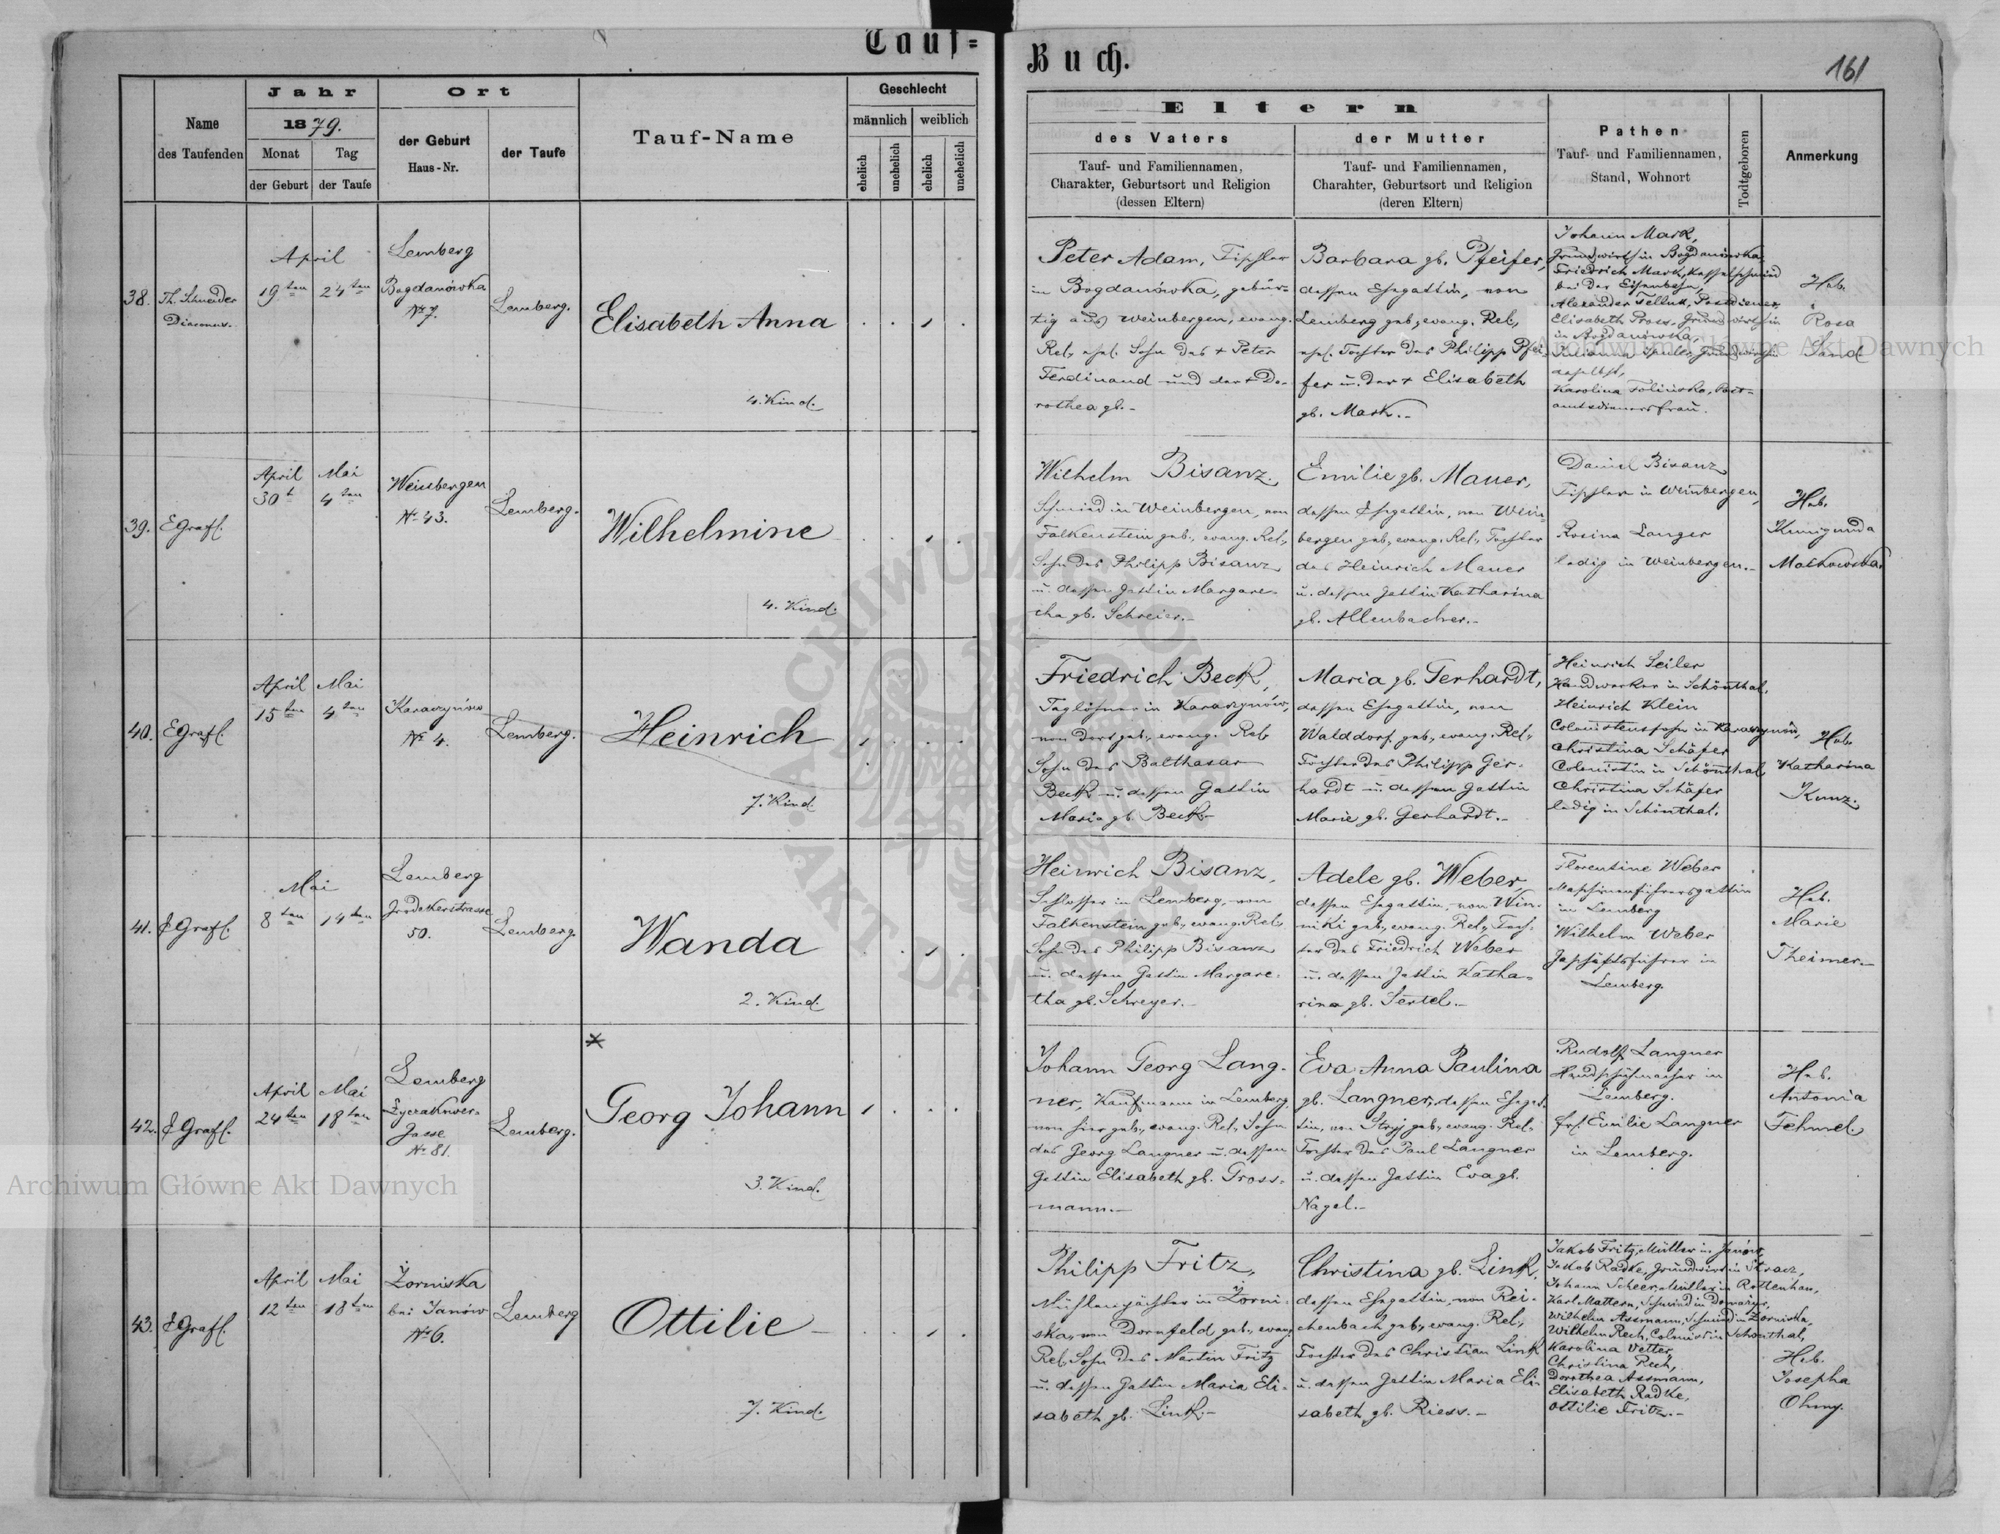 Tauf=
Buch.
161
Name
des Taufenden
Jahr
1879.
Monat
der Geburt
Tag
der Taufe
Ort
der Geburt
Haus-Nr.
der Taufe
Tauf-Name
Geschlecht
männlich
weiblich
ehelich
unehelich
ehelich
unehelich
Eltern
des Vaters
Tauf- und Familiennamen,
Charakter, Geburtsort und Religion
(dessen Eltern)
der Mutter
Tauf- und Familiennamen,
Charahter, Geburtsort und Religion
(deren Eltern)
Pathen
Tauf- und Familiennamen,
Stand, Wohnort
Todtgeboren
Anmerkung
38.
Th. Schneider
Diaconus.
April
19ten
24ten
Lemberg
Bogdanówka
No 7.
Lemberg.
Elisabeth Anna
4. Kind.
Peter Adam, Tischler
in Bogdanówka, gebür-
tig aus Weinbergen, evang.
Rel., ehel. Sohn des + Peter
Ferdinand und der + Do-
rothea gb. -
Barbara gb. Pfeifer,
dessen Ehegattin, von
Lemberg geb., evang. Rel.,
ehel. Tochter des Philipp Pfei-
fer u. der + Elisabeth
gb. Mark. -
Johann Mark,
Grundwirth in Bogdanówka
Friedrich Mark, Kesselschmied
bei der Eisenbahn,
Elisabeth Pross, Grundwirthin
in Bogdanówka,
daselbst,
Karolina
amtsdienersfrau.
Heb.
Rosa
Sand
39.
E Grafl.
April
30t
Mai
4ten
Weinbergen
No 43.
Lemberg.
Wilhelmine
4. Kind.
Wilhelm Bisanz,
Schmied in Weinbergen, von
Falkenstein geb., evang. Rel.,
Sohn des Philipp Bisanz
u. dessen Gattin Margare-
tha gb. Schreier. -
Emilie gb. Mauer,
dessen Ehegattin, von Wein-
bergen geb., evang. Rel., Tochter
des Heinrich Mauer
u. dessen Gattin Katharina
gb. Allenbacher. -
Daniel Bisanz
Tischler in Weinbergen,
Rosina Langer
ledig in Weinbergen. -
Heb.
Kunigunda
Matkowska.
40.
E Grafl.
April
15ten
Mai
4ten
Karaczynów
No 4.
Lemberg.
Heinrich
7. Kind
Friedrich Beck,
Taglöhner in Karaczynów,
von dort geb., evang. Rel.
Sohn des Balthasar
Beck u. dessen Gattin
Maria gb. Beck -
Maria gb. Gerhardt,
dessen Ehegattin, von
Walddorf geb., evang. Rel.,
Tochter des Philipp Ger-
hardt u. dessen Gattin
Marie gb. Gerhardt. -
Heinrich Seiler
Handwerker in Schönthal,
Heinrich Klein
Colonistenssohn in Karaczynów,
Christina Schäfer
Colonistin in Schönthal
Christina Schäfer
ledig in Schönthal.
Heb.
Katharina
Kunz.
41.
E Grafl.
Mai
8ten
14ten
Lemberg
Grodekerstrasse
50.
Lemberg.
Wanda
2. Kind.
Heinrich Bisanz,
Schlosser in Lemberg, von
Falkenstein geb., evang. Rel.,
Sohn des Philipp Bisanz
u. dessen Gattin Margare-
tha gb. Schreyer. -
Adele gb. Weber,
dessen Ehegattin, von Win-
niki geb., evang. Rel., Toch-
ter des Friedrich Weber
u. dessen Gattin Katha-
rina gb. Sertel. -
Florentine Weber
Maschinenführersgattin
in Lemberg
Wilhelm Weber
Geschäftsführer in
Lemberg.
Heb.
Marie
Theimer -
42.
E Grafl.
April
24ten
Mai
18ten
Lemberg
Łyczakower-
Gasse
No 81.
Lemberg.
Georg Johann
3. Kind.
Johann Georg Lang-
ner, Kaufmann in Lemberg,
von hier geb., evang. Rel., Sohn
des Georg Langner u. dessen
Gattin Elisabeth gb. Gross-
mann. -
Eva Anna Paulina
gb. Langner, dessen Ehegat-
tin, von Stryj geb., evang. Rel.
Tochter des Paul Langner
u. dessen Gattin Eva gb.
Nagel. -
Rudolf Langner
Handschuhmacher in
Lemberg.
Frl. Emilie Langner
in Lemberg.
Heb.
Antonia
Fehmel.
43.
E Grafl.
April
12ten
Mai
18ten
Żorniska
bei Janów
No 6.
Lemberg
Ottilie
7. Kind.
Philipp Fritz,
Mühlenpächter in Żorni-
ska, von Dornfeld geb., evang.
Rel., Sohn des Martin Fritz
u. dessen Gattin Maria Eli-
sabeth gb. Link. -
Christina gb. Link,
dessen Ehegattin, von Rei-
chenbach geb., evang. Rel.,
Tochter des Christian Link
u. dessen Gattin Maria Eli-
sabeth gb. Riess. -
Jakob Fritz, Müller in Janów,
Jakob Radke, Grundwirth in
Johann Scheer, Müller in Rottenhan,
Karl Mattern, Schmied in
Wilhelm Assmann, Schmied in Żorniska,
Wilhelm Rech, Colonist in Schönthal,
Karolina Vetter,
Christina Rech,
Dorothea Assmann,
Elisabeth Radke,
Ottilie Fritz. -
Heb.
Josepha
Ohmy.
Archiwum Główne Akt Dawnych
Archiwum Główne Akt Dawnych